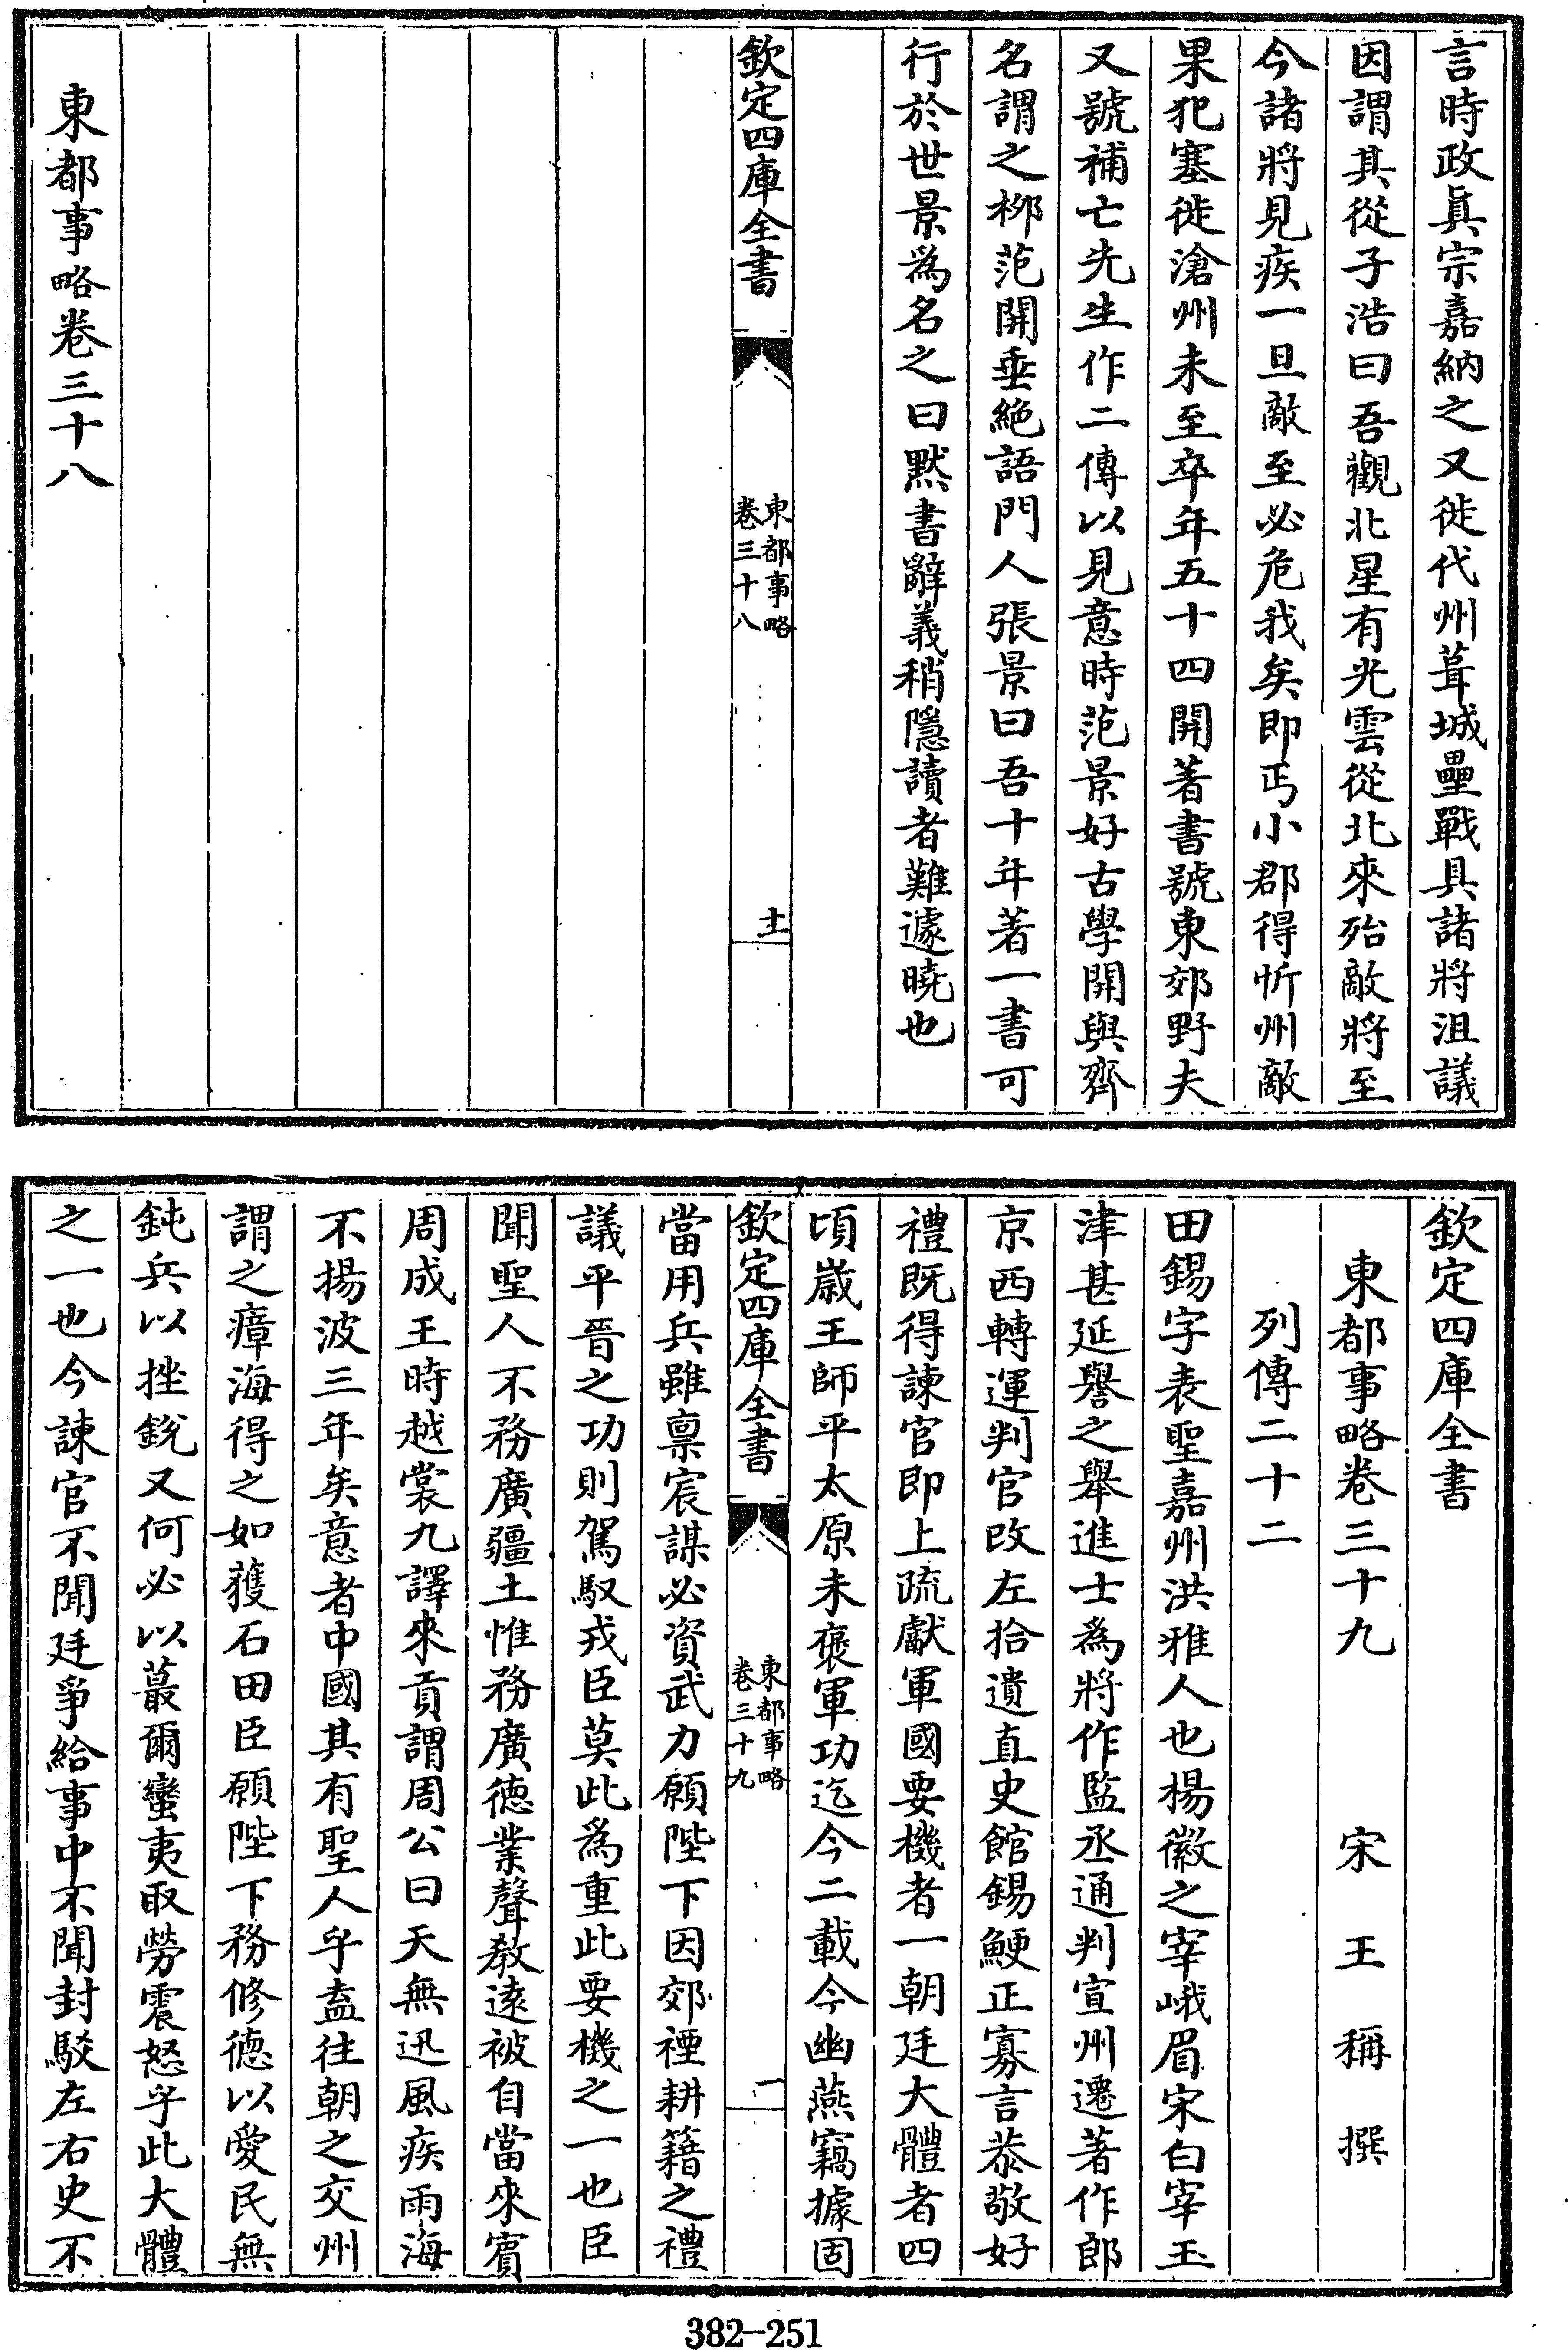 言時政真宗嘉納之又徙代州葺城壘戰具諸將沮議
因謂其從子浩曰吾觀北星有光雲從北來殆敵將至
今諸將見疾一旦敵至必危我矣即丐小郡得忻州敵
果犯塞徙滄州未至卒年五十四開著書號東郊野夫
又號補亡先生作二傳以見意時范景好古學開與齊
名謂之栁范開垂絶語門人張景曰吾十年著一書可
行於世景為名之曰黙書辭義稍隱讀者難遽曉也
欽定四庫全書
東都事略
卷三十八
十一
東都事略卷三十八
欽定四庫全書
東都事略卷三十九 宋 王稱 撰
列傳二十二
田錫字表聖嘉州洪雅人也楊徽之宰峨眉宋白宰玉
津甚延譽之舉進士為將作監丞通判宣州遷著作郎
京西轉運判官改左拾遺直史館錫鯁正寡言恭敬好
禮既得諫官即上疏獻軍國要機者一朝廷大體者四
頃歲王師平太原未褒軍功迄今二載今幽燕竊據固
欽定四庫全書
東都事略
卷三十九
一
當用兵雖禀宸謀必資武力願陛下因郊禋耕籍之禮
議平晉之功則駕馭戎臣莫此為重此要機之一也臣
聞聖人不務廣疆土惟務廣徳業聲教遠被自當來賓
周成王時越裳九譯來貢謂周公曰天無迅風疾雨海
不揚波三年矣意者中國其有聖人乎盍往朝之交州
謂之瘴海得之如獲石田臣願陛下務修徳以愛民無
鈍兵以挫銳又何必以蕞爾蠻夷取勞震怒乎此大體
之一也今諫官不聞廷爭給事中不聞封駁左右史不
382-251